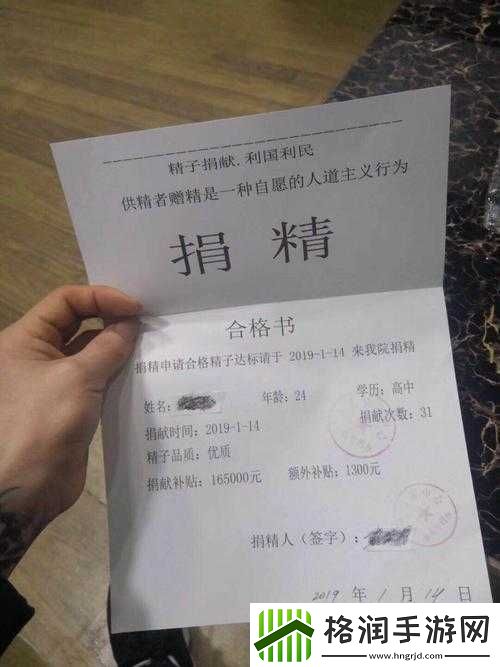 精子捐献.利国利民
供精者赠精是一种自愿的人道主义行为
捐 精
合格书
捐精申请合格精子达标请于 2019-1-14 来我院捐精
姓名: 年龄:24 学历:高中
捐献时间:2019-1-14 捐献次数:31
精子品质:优质
捐献补贴:165000元 额外补贴:1300元
捐精人(签字):
2019 年 1 月 14 日
格润手游网
www.hngrjd.com